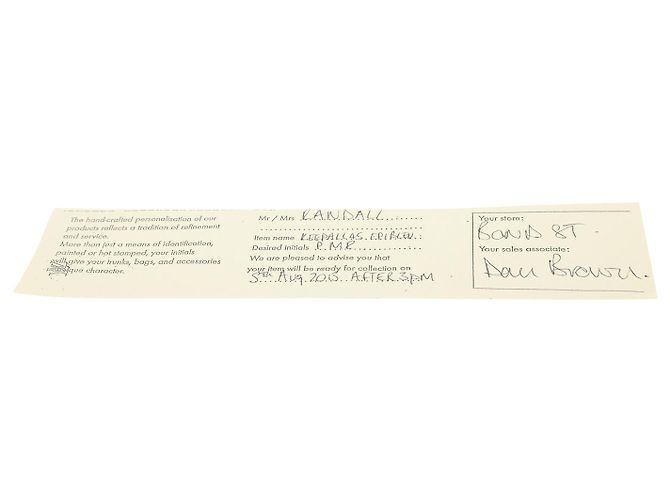 The hand-crafted personalisation of our
products reflects a tradition of refinement
and service.
More than just a means of identification,
painted or hot stamped, your initials
will give your trunks, bags, and accessories
que character.
Mr / Mrs RANDALL
Item name KEEPALLAS EPI
Desired initials P.M.R
We are pleased to advise you that
your item will be ready for collection on
5th Aug 2013 AFTER 3pm
Your store:
BOND ST.
Your sales associate:
Dan Brown.